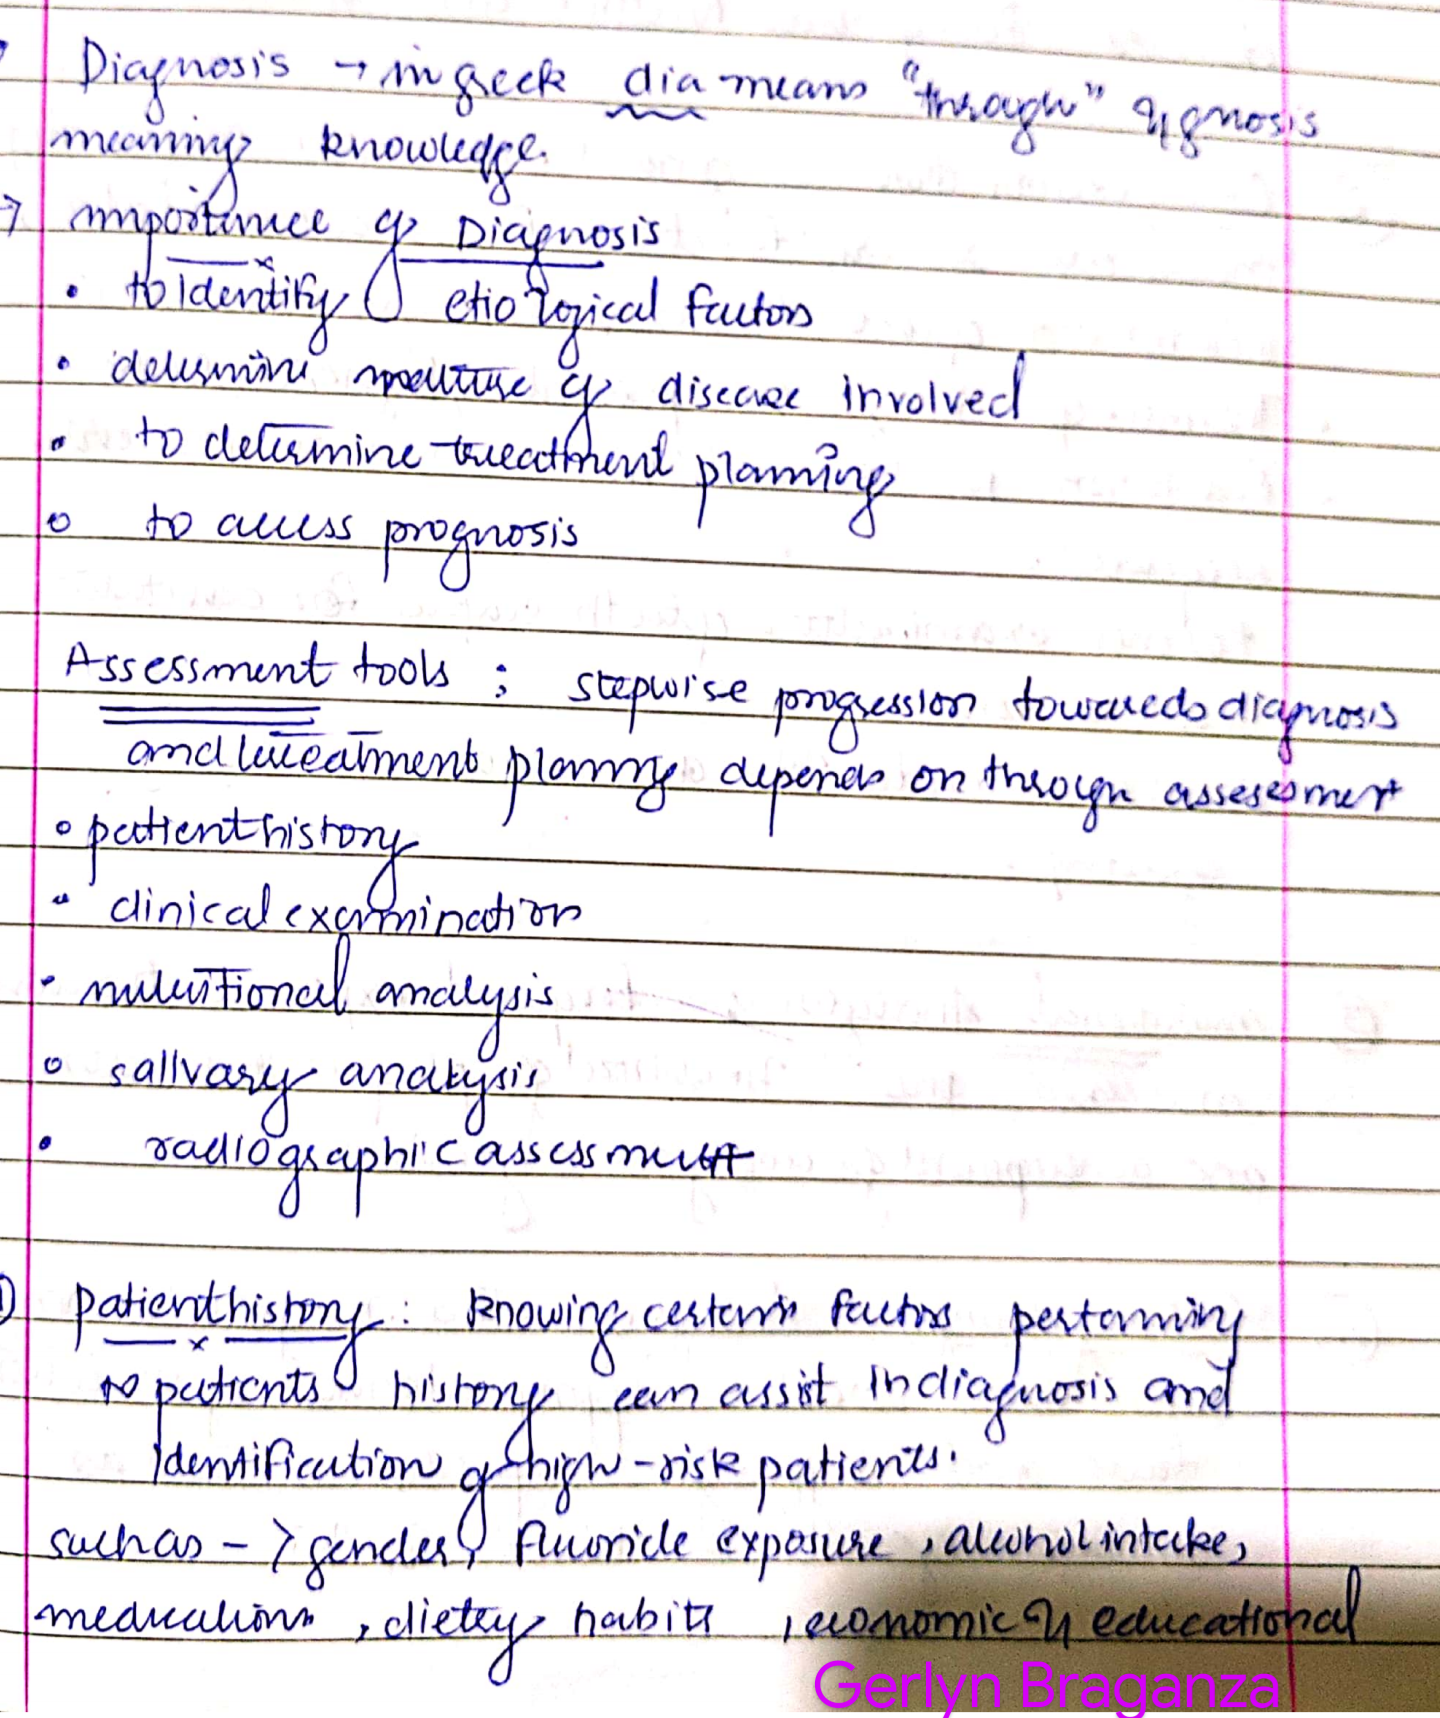 Diagnosis → in greek dia means "through" & gnosis
meaning knowledge.
→ importance of Diagnosis
• to Identify etiological factors
• determine nature of disease involved
• to determine treatment planning
• to access prognosis
Assessment tools : stepwise progression towards diagnosis
and treatment planning depends on through assessment
• patient history
• clinical examination
• nutritional analysis
• salivary analysis
• radiographic assessment
1) patient history : knowing certain factors pertaining
to patients history can assist in diagnosis and
Identification of high-risk patients.
such as -> gender, Fluoride exposure, alcohol intake,
medications, dietry habits, economic & educational
Gerlyn Braganza